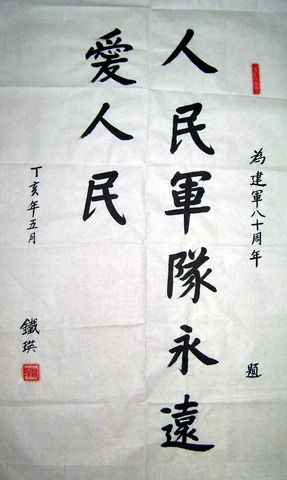 為建軍八十周年 題
人民軍隊永遠
愛人民
丁亥年五月
鐵瑛